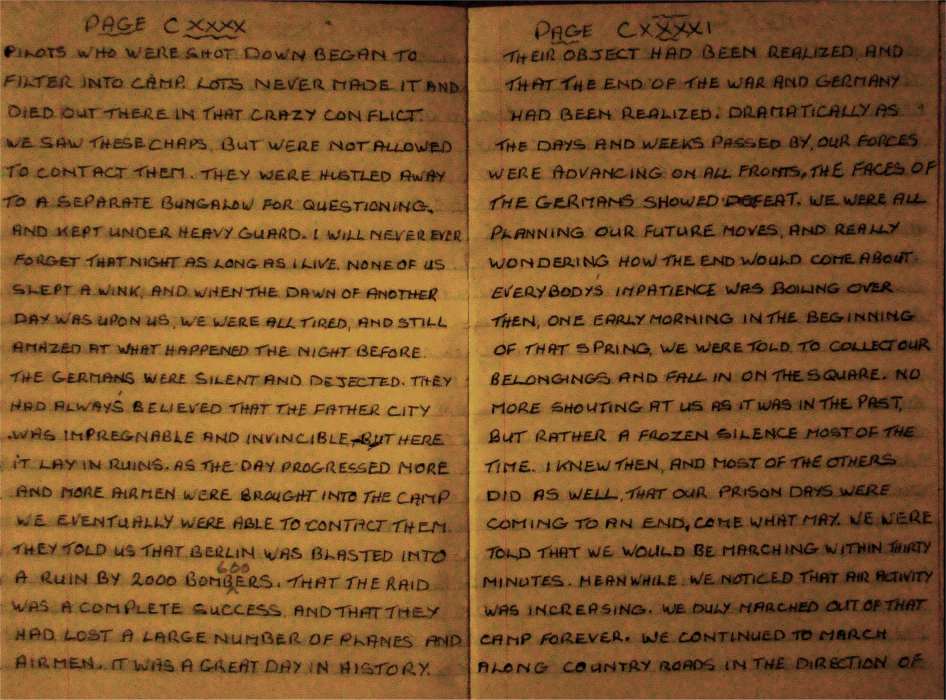 PAGE CXXXX
PILOTS WHO WERE SHOT DOWN BEGAN TO
FILTER INTO CAMP. LOTS NEVER MADE IT AND
DIED OUT THERE IN THAT CRAZY CONFLICT.
WE SAW THESE CHAPS, BUT WERE NOT ALLOWED
TO CONTACT THEM. THEY WERE HUSTLED AWAY
TO A SEPARATE BUNGALOW FOR QUESTIONING,
AND KEPT UNDER HEAVY GUARD. I WILL NEVER EVER
FORGET THAT NIGHT AS LONG AS I LIVE. NONE OF US
SLEPT A WINK, AND WHEN THE DAWN OF ANOTHER
DAY WAS UPON US, WE WERE ALL TIRED, AND STILL
AMAZED AT WHAT HAPPENED THE NIGHT BEFORE.
THE GERMANS WERE SILENT AND DEJECTED. THEY
HAD ALWAYS BELIEVED THAT THE FATHER CITY
WAS IMPREGNABLE AND INVINCIBLE, BUT HERE
IT LAY IN RUINS. AS THE DAY PROGRESSED MORE
AND MORE AIRMEN WERE BROUGHT INTO THE CAMP
WE EVENTUALLY WERE ABLE TO CONTACT THEM.
THEY TOLD US THAT BERLIN WAS BLASTED INTO
600
A RUIN BY 2000 BOMBERS. THAT THE RAID
WAS A COMPLETE SUCCESS. AND THAT THEY
HAD LOST A LARGE NUMBER OF PLANES AND
AIRMEN. IT WAS A GREAT DAY IN HISTORY.
PAGE CXXXXI
THEIR OBJECT HAD BEEN REALIZED, AND
THAT THE END OF THE WAR AND GERMANY
HAD BEEN REALIZED. DRAMATICALLY AS
THE DAYS AND WEEKS PASSED BY, OUR FORCES
WERE ADVANCING ON ALL FRONTS, THE FACES OF
THE GERMANS SHOWED DEFEAT. WE WERE ALL
PLANNING OUR FUTURE MOVES, AND REALLY
WONDERING HOW THE END WOULD COME ABOUT.
EVERYBODYS IMPATIENCE WAS BOILING OVER
THEN, ONE EARLY MORNING IN THE BEGINNING
OF THAT SPRING, WE WERE TOLD TO COLLECT OUR
BELONGINGS AND FALL IN ON THE SQUARE. NO
MORE SHOUTING AT US AS IT WAS IN THE PAST,
BUT RATHER A FROZEN SILENCE MOST OF THE
TIME. I KNEW THEN, AND MOST OF THE OTHERS
DID AS WELL, THAT OUR PRISON DAYS WERE
COMING TO AN END, COME WHAT MAY. WE WERE
TOLD THAT WE WOULD BE MARCHING WITHIN THIRTY
MINUTES. MEANWHILE. WE NOTICED THAT AIR ACTIVITY
WAS INCREASING. WE DULY MARCHED OUT OF THAT
CAMP FOREVER. WE CONTINUED TO MARCH
ALONG COUNTRY ROADS IN THE DIRECTION OF